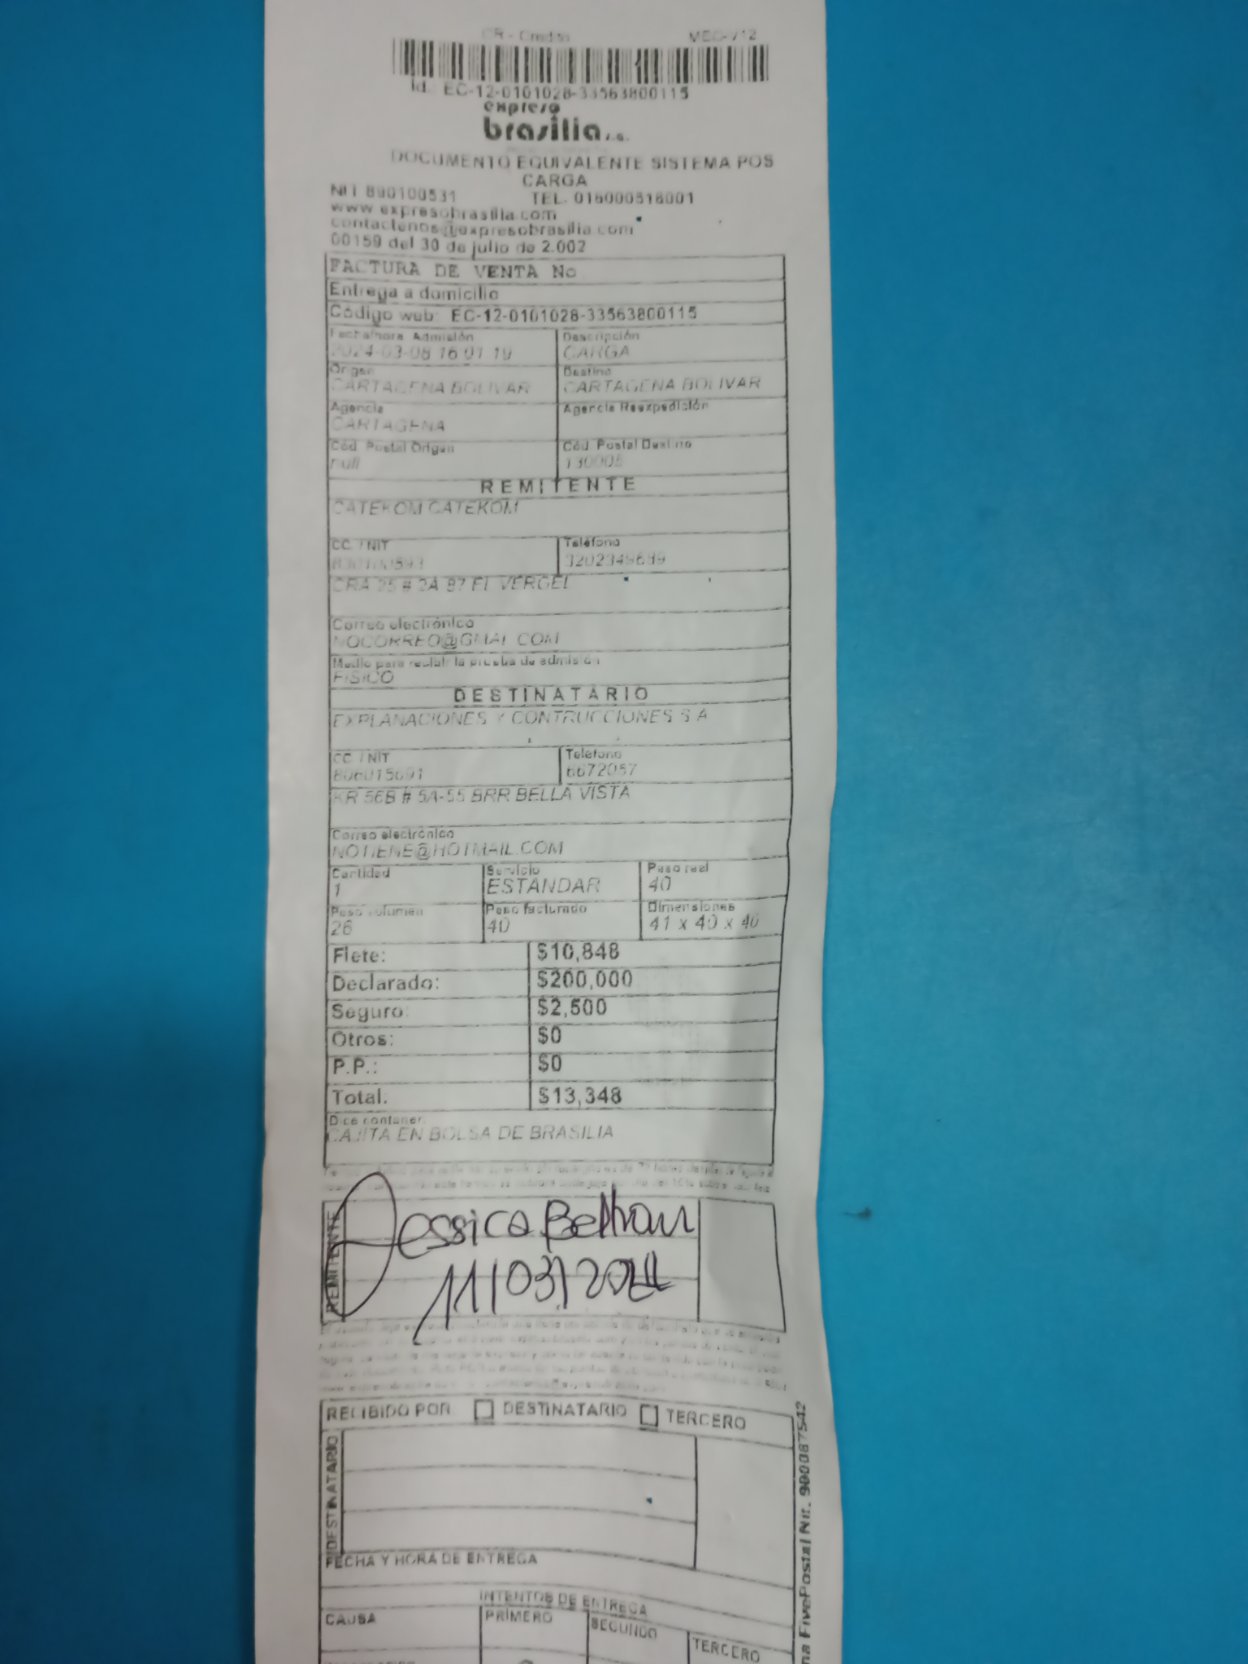 CR - Credito
Id.: EC-12-0101028-33563800115
expreso
brasilia s.a.
DOCUMENTO EQUIVALENTE SISTEMA POS
CARGA
NIT 890100531 TEL. 018000518001
www expresobrasilia com
contactenos@expresobrasilia com
00159 del 30 de julio de 2.002
FACTURA DE VENTA No
Entrega a domicilio
Código web: EC-12-0101028-33563800115
Fecha/hora Admisión Descripción
2024-03-08 16 01 19 CARGA
Origen Destino
CARTAGENA BOLIVAR CARTAGENA BOLIVAR
Agencia Agencia Reexpedición
CARTAGENA
Cód. Postal Origen Cód. Postal Destino
null 130005
REMITENTE
CATEKOM CATEKOM
CC / NIT Teléfono
CRA 25 # 2A 87 EL VERGEL
Correo electrónico
NOCORREO@GMAL COM
Medio para recibir la prueba de admisión
FISICO
DESTINATARIO
EXPLANACIONES Y CONTRUCCIONES S A
CC / NIT Teléfono
806015691 6672057
KR 56B # 5A-55 BRR BELLA VISTA
Correo electrónico
NOTIENE@HOTMAIL COM
Cantidad Servicio Peso real
1 ESTANDAR 40
Peso volumen Peso facturado Dimensiones
26 40 41 x 40 x 40
Flete: $10,848
Declarado: $200,000
Seguro: $2,500
Otros: $0
P.P.: $0
Total. $13,348
Dice contener
CAJITA EN BOLSA DE BRASILIA
REMITENTE
Jessica Beltran
11/03/2024
RECIBIDO POR DESTINATARIO TERCERO
DESTINATARIO
FECHA Y HORA DE ENTREGA
INTENTOS DE ENTREGA
CAUSA PRIMERO SEGUNDO TERCERO
FivePostal Nit. 900087542